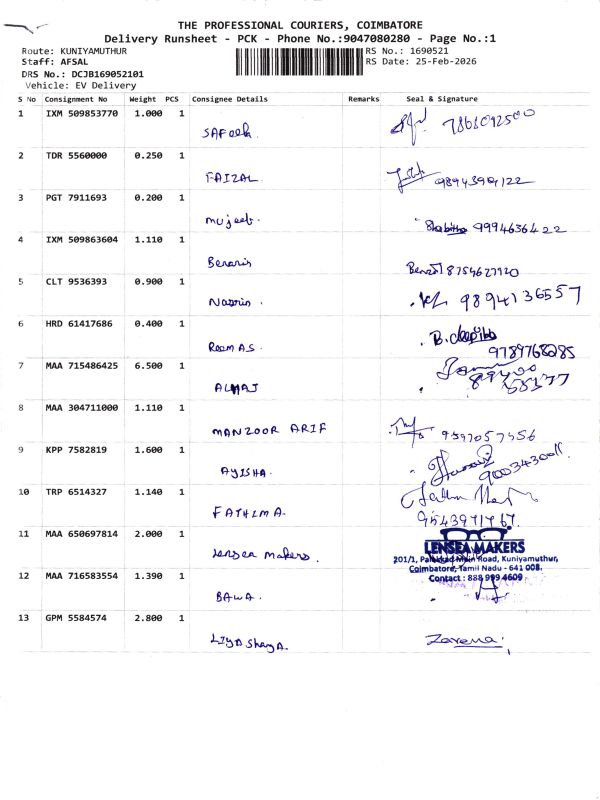 THE PROFESSIONAL COURIERS, COIMBATORE
Delivery Runsheet - PCK - Phone No.:9047080280 - Page No.:1
Route: KUNIYAMUTHUR
RS No.: 1690521
Staff: AFSAL
RS Date: 25-Feb-2026
DRS No.: DCJB169052101
Vehicle: EV Delivery
S No Consignment No Weight PCS Consignee Details Remarks Seal & Signature
1 IXM 509853770 1.000 1
SAFeeh.
2 TDR 5560000 0.250 1
FAIZAL.
3 PGT 7911693 0.200 1
mujeeb. 9994636422
4 IXM 509863604 1.110 1
8754627920
5 CLT 9536393 0.900 1
9894136557
6 HRD 61417686 0.400 1
9789768285
7 MAA 715486425 6.500 1
8 MAA 304711000 1.110 1
MANZOOR ARIF
9 KPP 7582819 1.600 1
AYISHA.
10 TRP 6514327 1.140 1
FATHIMA.
11 MAA 650697814 2.000 1
Lensea makers.
LENSEA MAKERS
201/1, Palakkad Main Road, Kuniyamuthur,
Coimbatore, Tamil Nadu - 641 008.
Contact : 888 999 4609
12 MAA 716583554 1.390 1
BAWA.
13 GPM 5584574 2.800 1
Zareena.